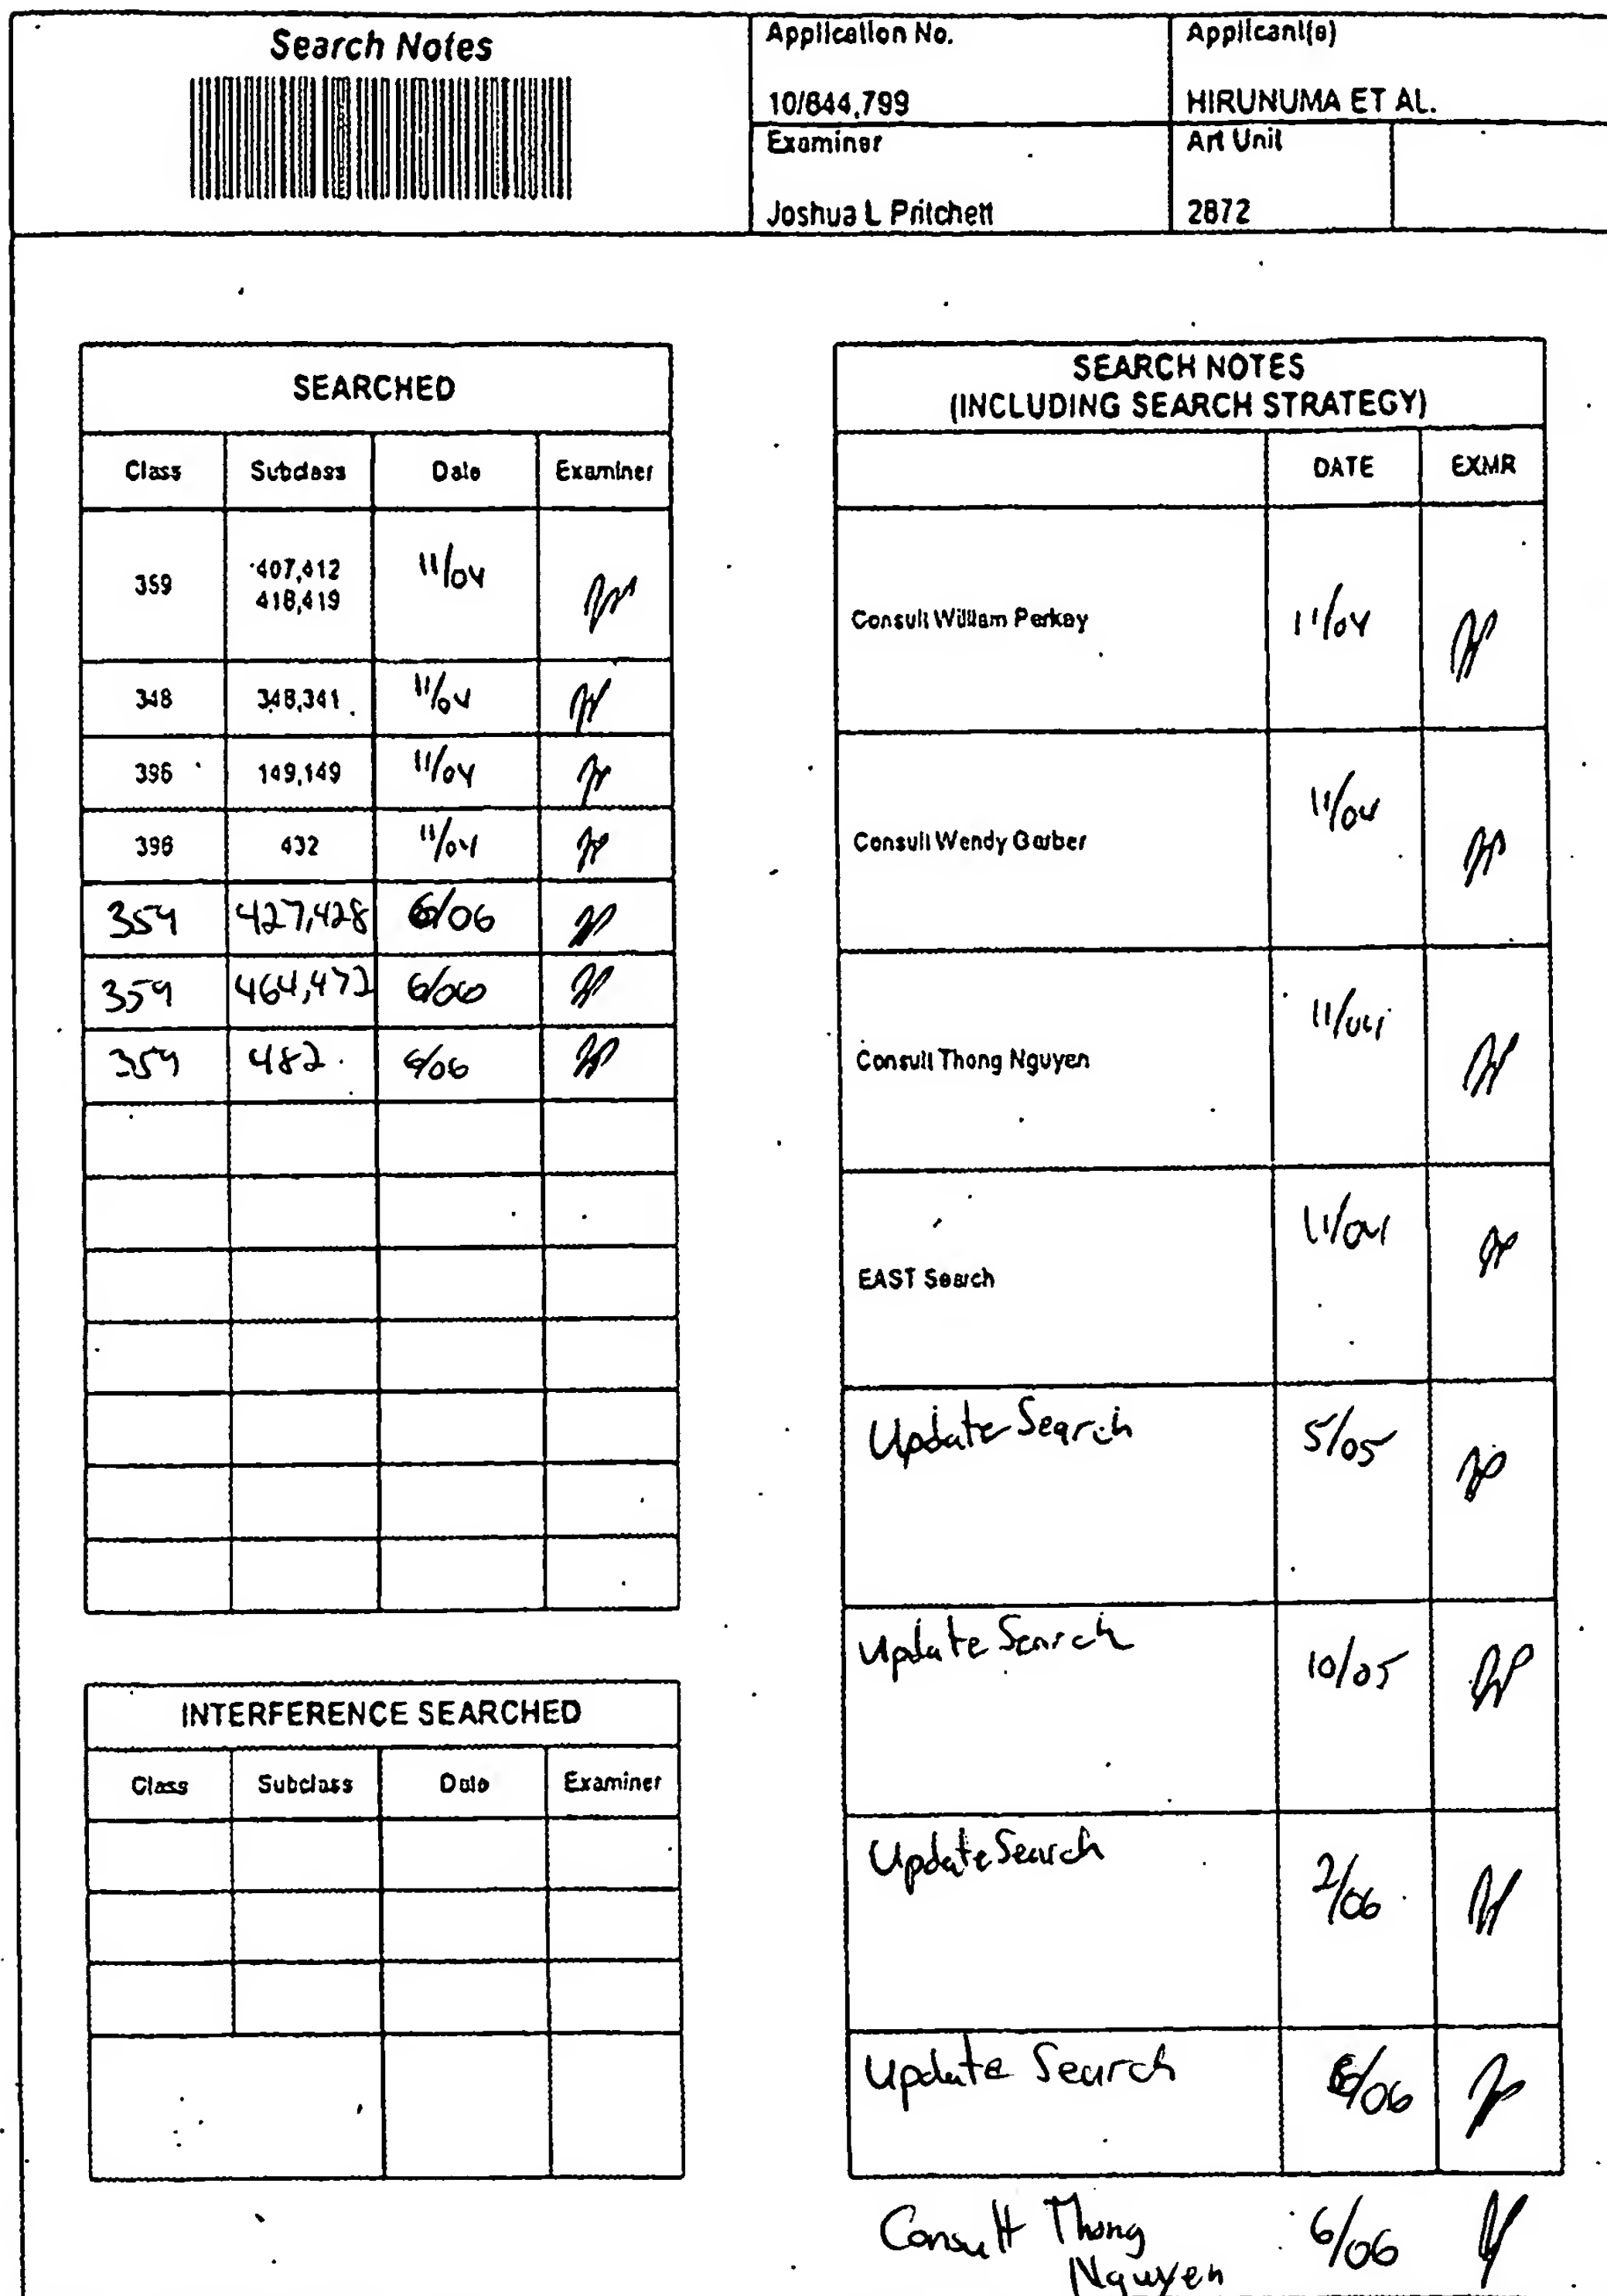 Search Notes
Application No.
Applicant(s)
10/644,799
HIRUNUMA ET AL.
Examiner
Art Unit
Joshua L Pritchett
2872
SEARCHED
Class Subclass Date Examiner
359 407,412 11/04
418,419
348 348,341 11/04
396 149,149 11/04
396 432 11/04
359 427,428 6/06
359 464,472 6/06
359 482 6/06
INTERFERENCE SEARCHED
Class Subclass Date Examiner
SEARCH NOTES
(INCLUDING SEARCH STRATEGY)
DATE EXMR
Consult William Perkey 11/04
Consult Wendy Garber 11/04
Consult Thong Nguyen 11/04
EAST Search 11/04
Update Search 5/05
Update Search 10/05
Update Search 2/06
Update Search 6/06
Consult Thong 6/06
Nguyen